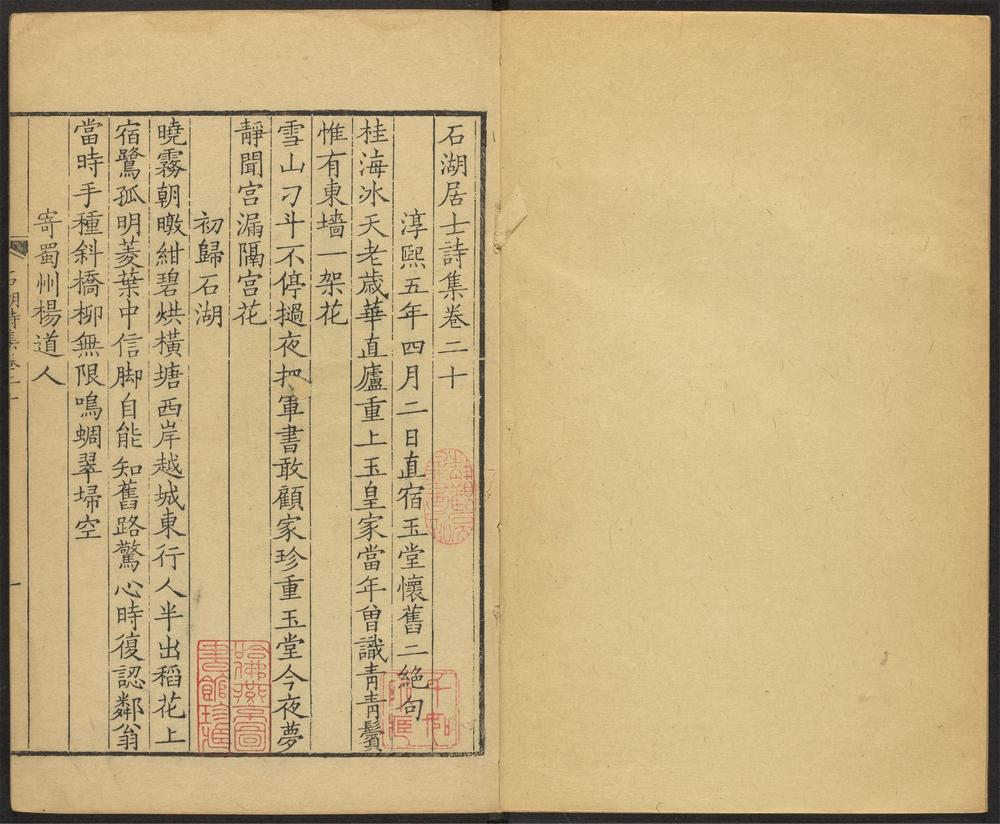 石湖居士詩集卷二十
淳熙五年四月二日直宿玉堂懷舊二絶句
桂海冰天老歲華直廬重上玉皇家當年曾識青青鬢
惟有東墻一架花
雪山刁斗不停撾夜把軍書敢顧家珍重玉堂今夜夢
靜聞宮漏隔宮花
初歸石湖
曉霧朝暾紺碧烘橫塘西岸越城東行人半出稻花上
宿鷺孤明菱葉中信脚自能知舊路驚心時復認鄰翁
當時手種斜橋柳無限鳴蜩翠埽空
寄蜀州楊道人
哈佛燕京圖書館珍藏